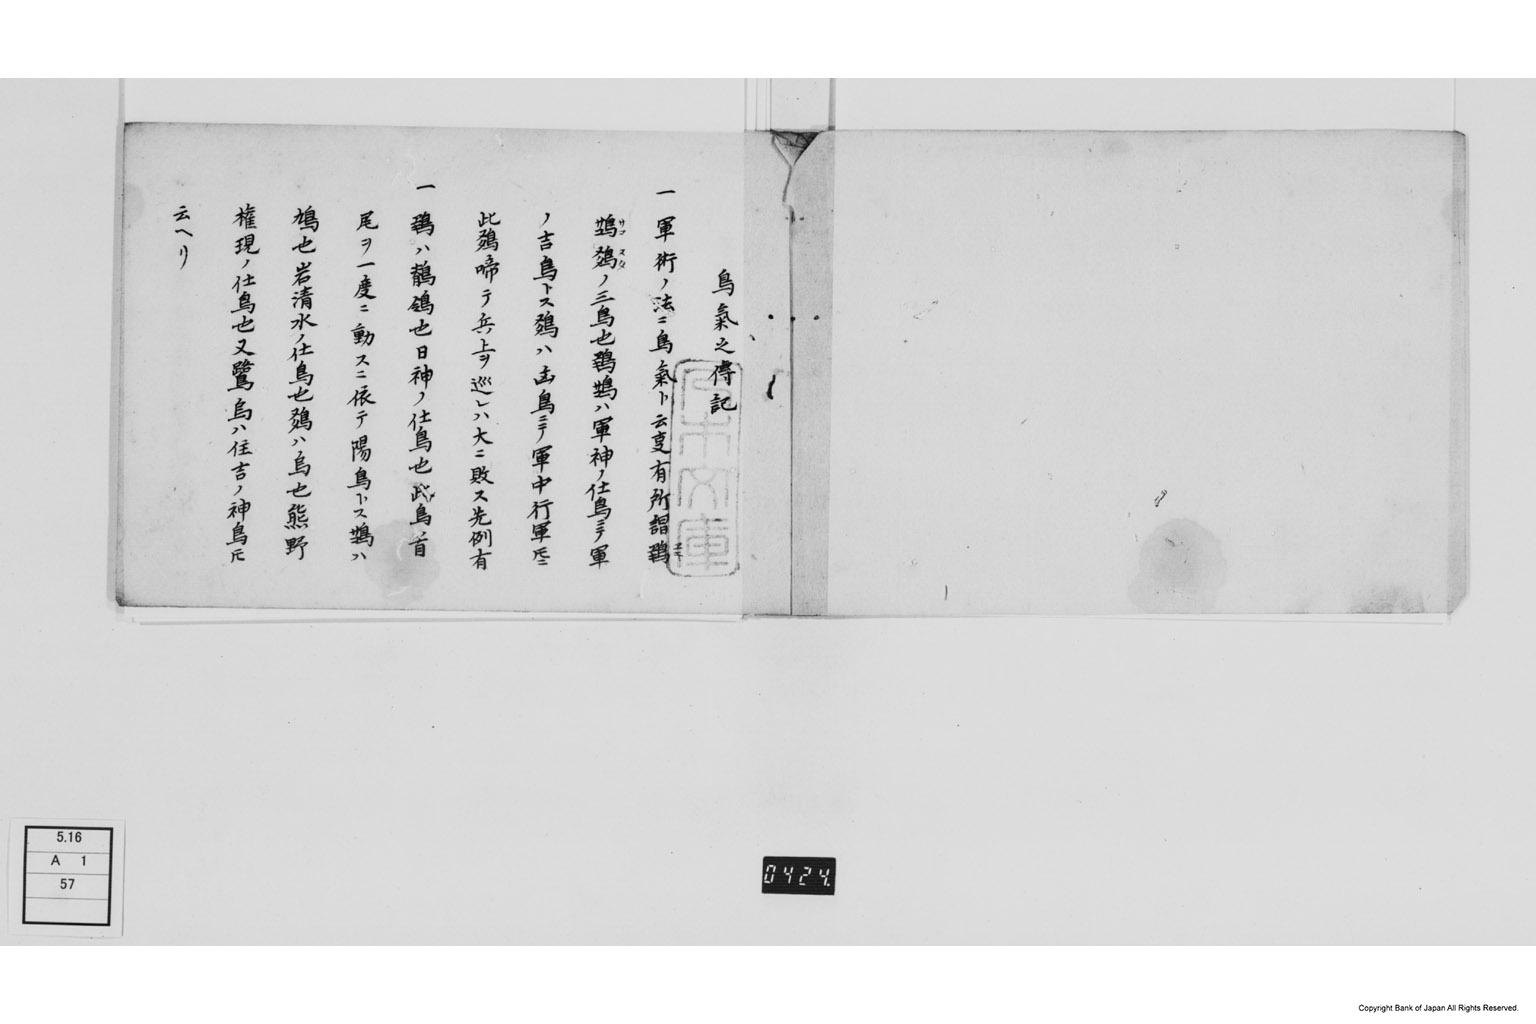 鳥氣之傳記
一 軍術ノ法ニ鳥氣ト云叓有所謂鵶
鵶ノ三鳥也鵶ハ軍神ノ仕鳥ニテ軍
ノ吉鳥トス鵶ハ凶鳥ニテ軍中行軍
此鵶啼テ兵上ヲ巡レハ大ニ敗ス先例有
一 ハ鶺鴒也日神ノ仕鳥也此鳥首
尾ヲ一度ニ動スニ依テ陽鳥トスハ
鳩也岩清水ノ仕鳥也ハ烏也熊野
権現ノ仕鳥也又鷺烏ハ住吉ノ神鳥𪜈
云ヘリ
5.16
A 1
57
0424
Copyright Bank of Japan All Rights Reserved.